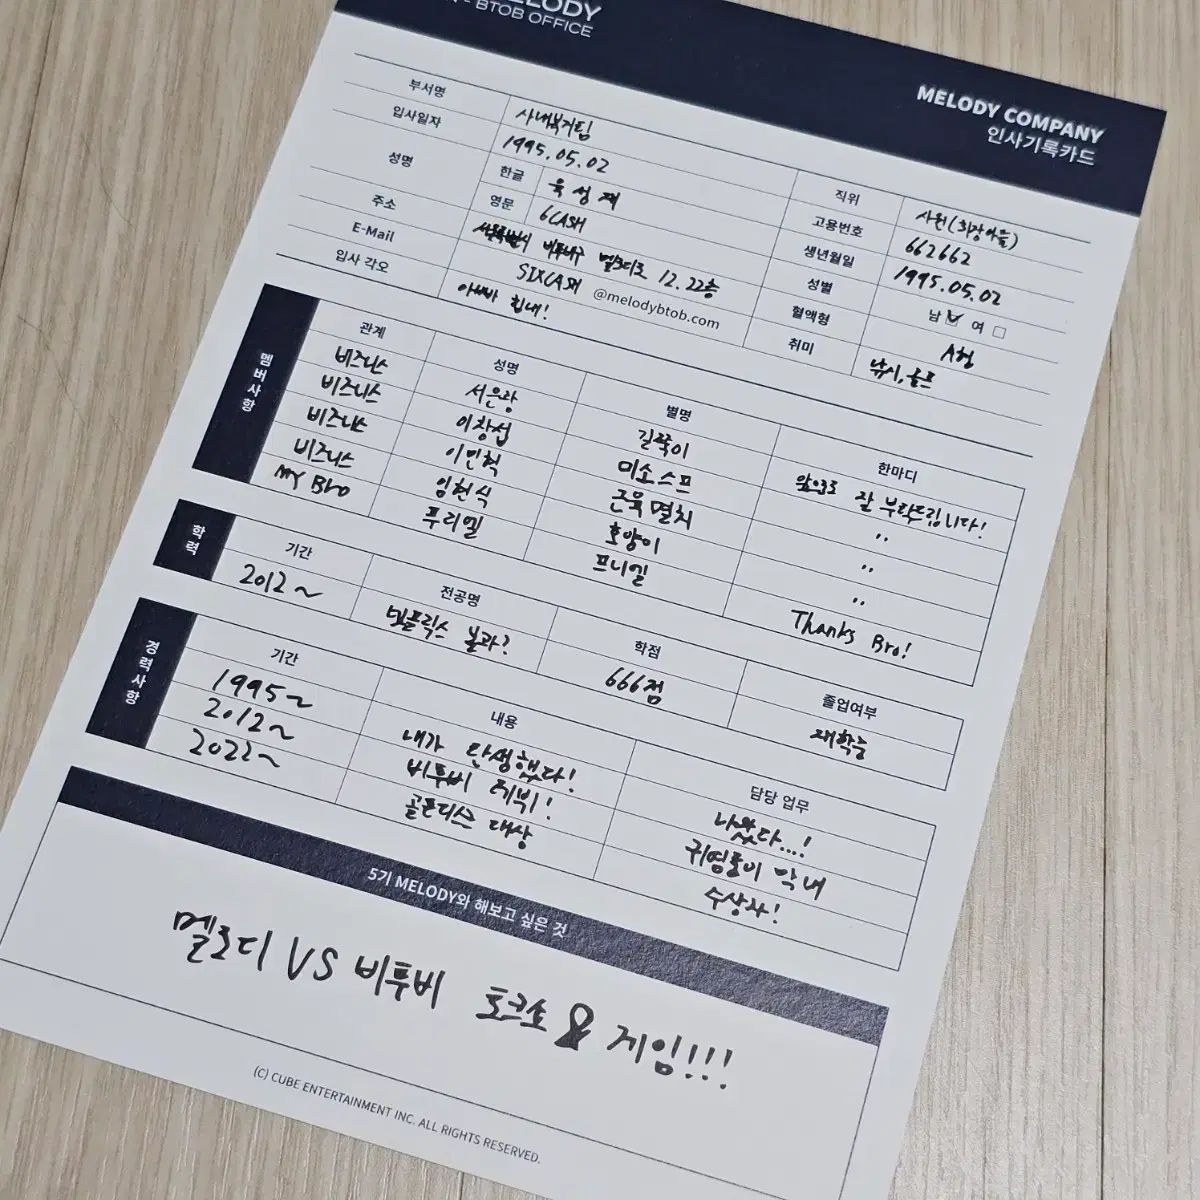 MELODY
BTOB OFFICE
MELODY COMPANY
인사기록카드
부서명 사내복거팀 직위 사원(회장아들)
입사일자 1995.05.02 고용번호 662662
성명 한글 육성재 생년월일 1995.05.02
영문 6CASH 성별 남 여
주소 비투비구 멜로디로 12.22층 혈액형 A형
E-Mail SIXCASH @melodybtob.com 취미 낚시,골프
입사 각오 아빠 힘내!
멤버사항
관계 성명 별명 한마디
비즈니스 서은광 길쭉이 앞으로 잘 부탁드립니다!
비즈니스 이창섭 미소스프 〃
비즈니스 이민혁 근육멸치 〃
비즈니스 임현식 호양이 〃
MY Bro 푸리엘 프니엘 Thanks Bro!
학력
기간 전공명 학점 졸업여부
2012~ 넷플릭스 볼과? 666점 재학중
경력사항
기간 내용 담당 업무
1995~ 내가 탄생했다! 나왔다...!
2012~ 비투비 데뷔! 귀염둥이 막내
2022~ 골든디스크 대상 수상자!
5기 MELODY와 해보고 싶은 것
멜로디 VS 비투비 토크쇼 & 게임!!!
(C) CUBE ENTERTAINMENT INC. ALL RIGHTS RESERVED.